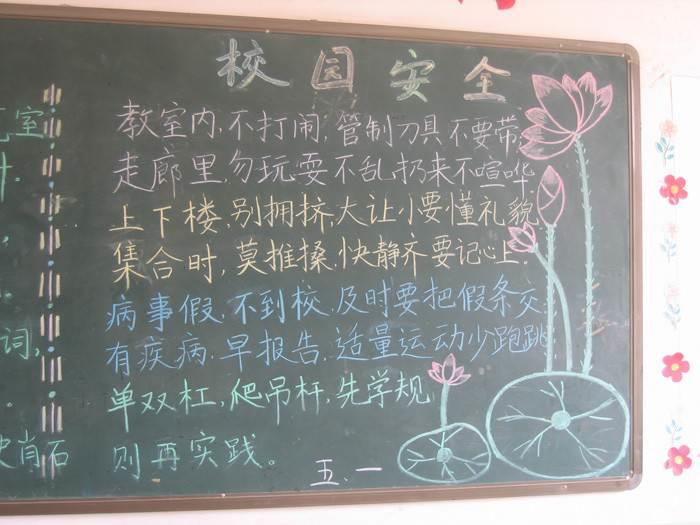 校园安全
教室内,不打闹,管制刀具不要带,
走廊里,勿玩耍不乱扔来不喧哗,
上下楼,别拥挤,大让小要懂礼貌,
集合时,莫推搡,快静齐要记心上,
病事假,不到校,及时要把假条交,
有疾病,早报告,适量运动少跑跳,
单双杠,爬吊杆,先学规
则再实践。
五、一
室
词,
史肖石